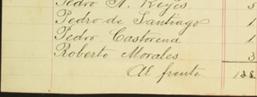 Pedro A. Reyes
Pedro de Santiago 1
Pedro Castorena 1
Roberto Morales 3
Al frente